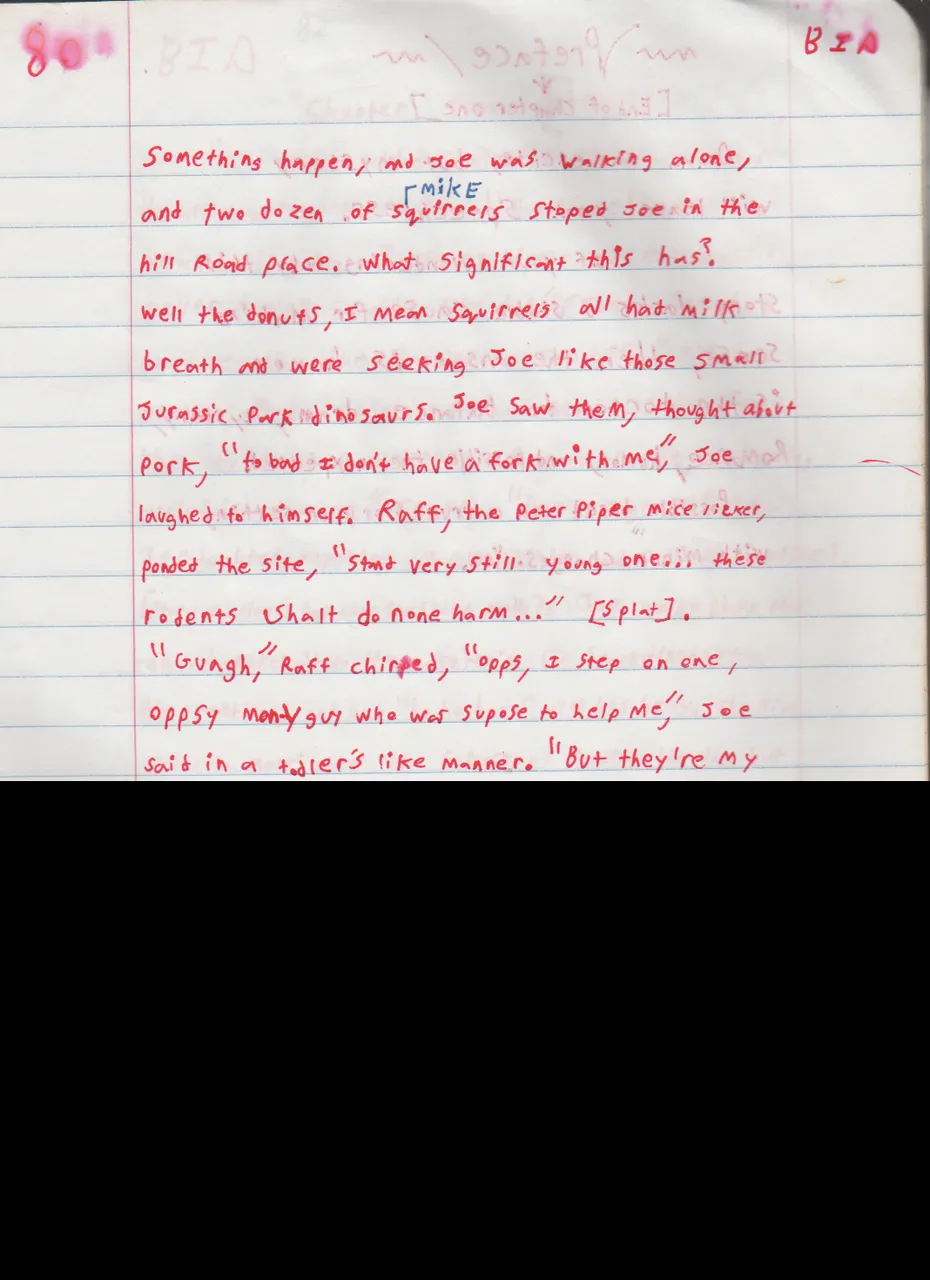 80
BIA
Something happen, and Joe was walking alone,
MikE
and two dozen of squirrels stoped Joe in the
hill Road place. What significant this has?
Well the donuts, I mean squirrels all had milk
breath and were seeking Joe like those small
Jurassic Park dinosaurs. Joe saw them, thought about
pork, "to bad I don't have a fork with me", Joe
laughed to himself. Raff, the Peter Piper mice licker,
ponded the site, "Stand very still young one... these
rodents Shalt do none harm..." [Splat].
"Guagh," Raff chirped, "opps, I step on one,
oppsy guy who was supose to help me", Joe
said in a todler's like manner. "But they're my